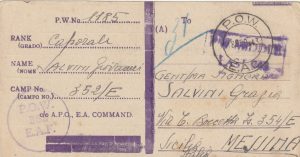 P.W No. 1185
RANK
(GRADO) Caporale
NAME
(NOME) Salvini Giovanni
CAMP No.
(CAMPO NO.) 352/E
c/o A.P.O., E.A. COMMAND.
P.O.W.
E.A.F.
To
(A)
P.O.W.
Gentma Signora
SALVINI Grazia
Via C. Boccetta Is. 354/E
MESSINA
Sicilia